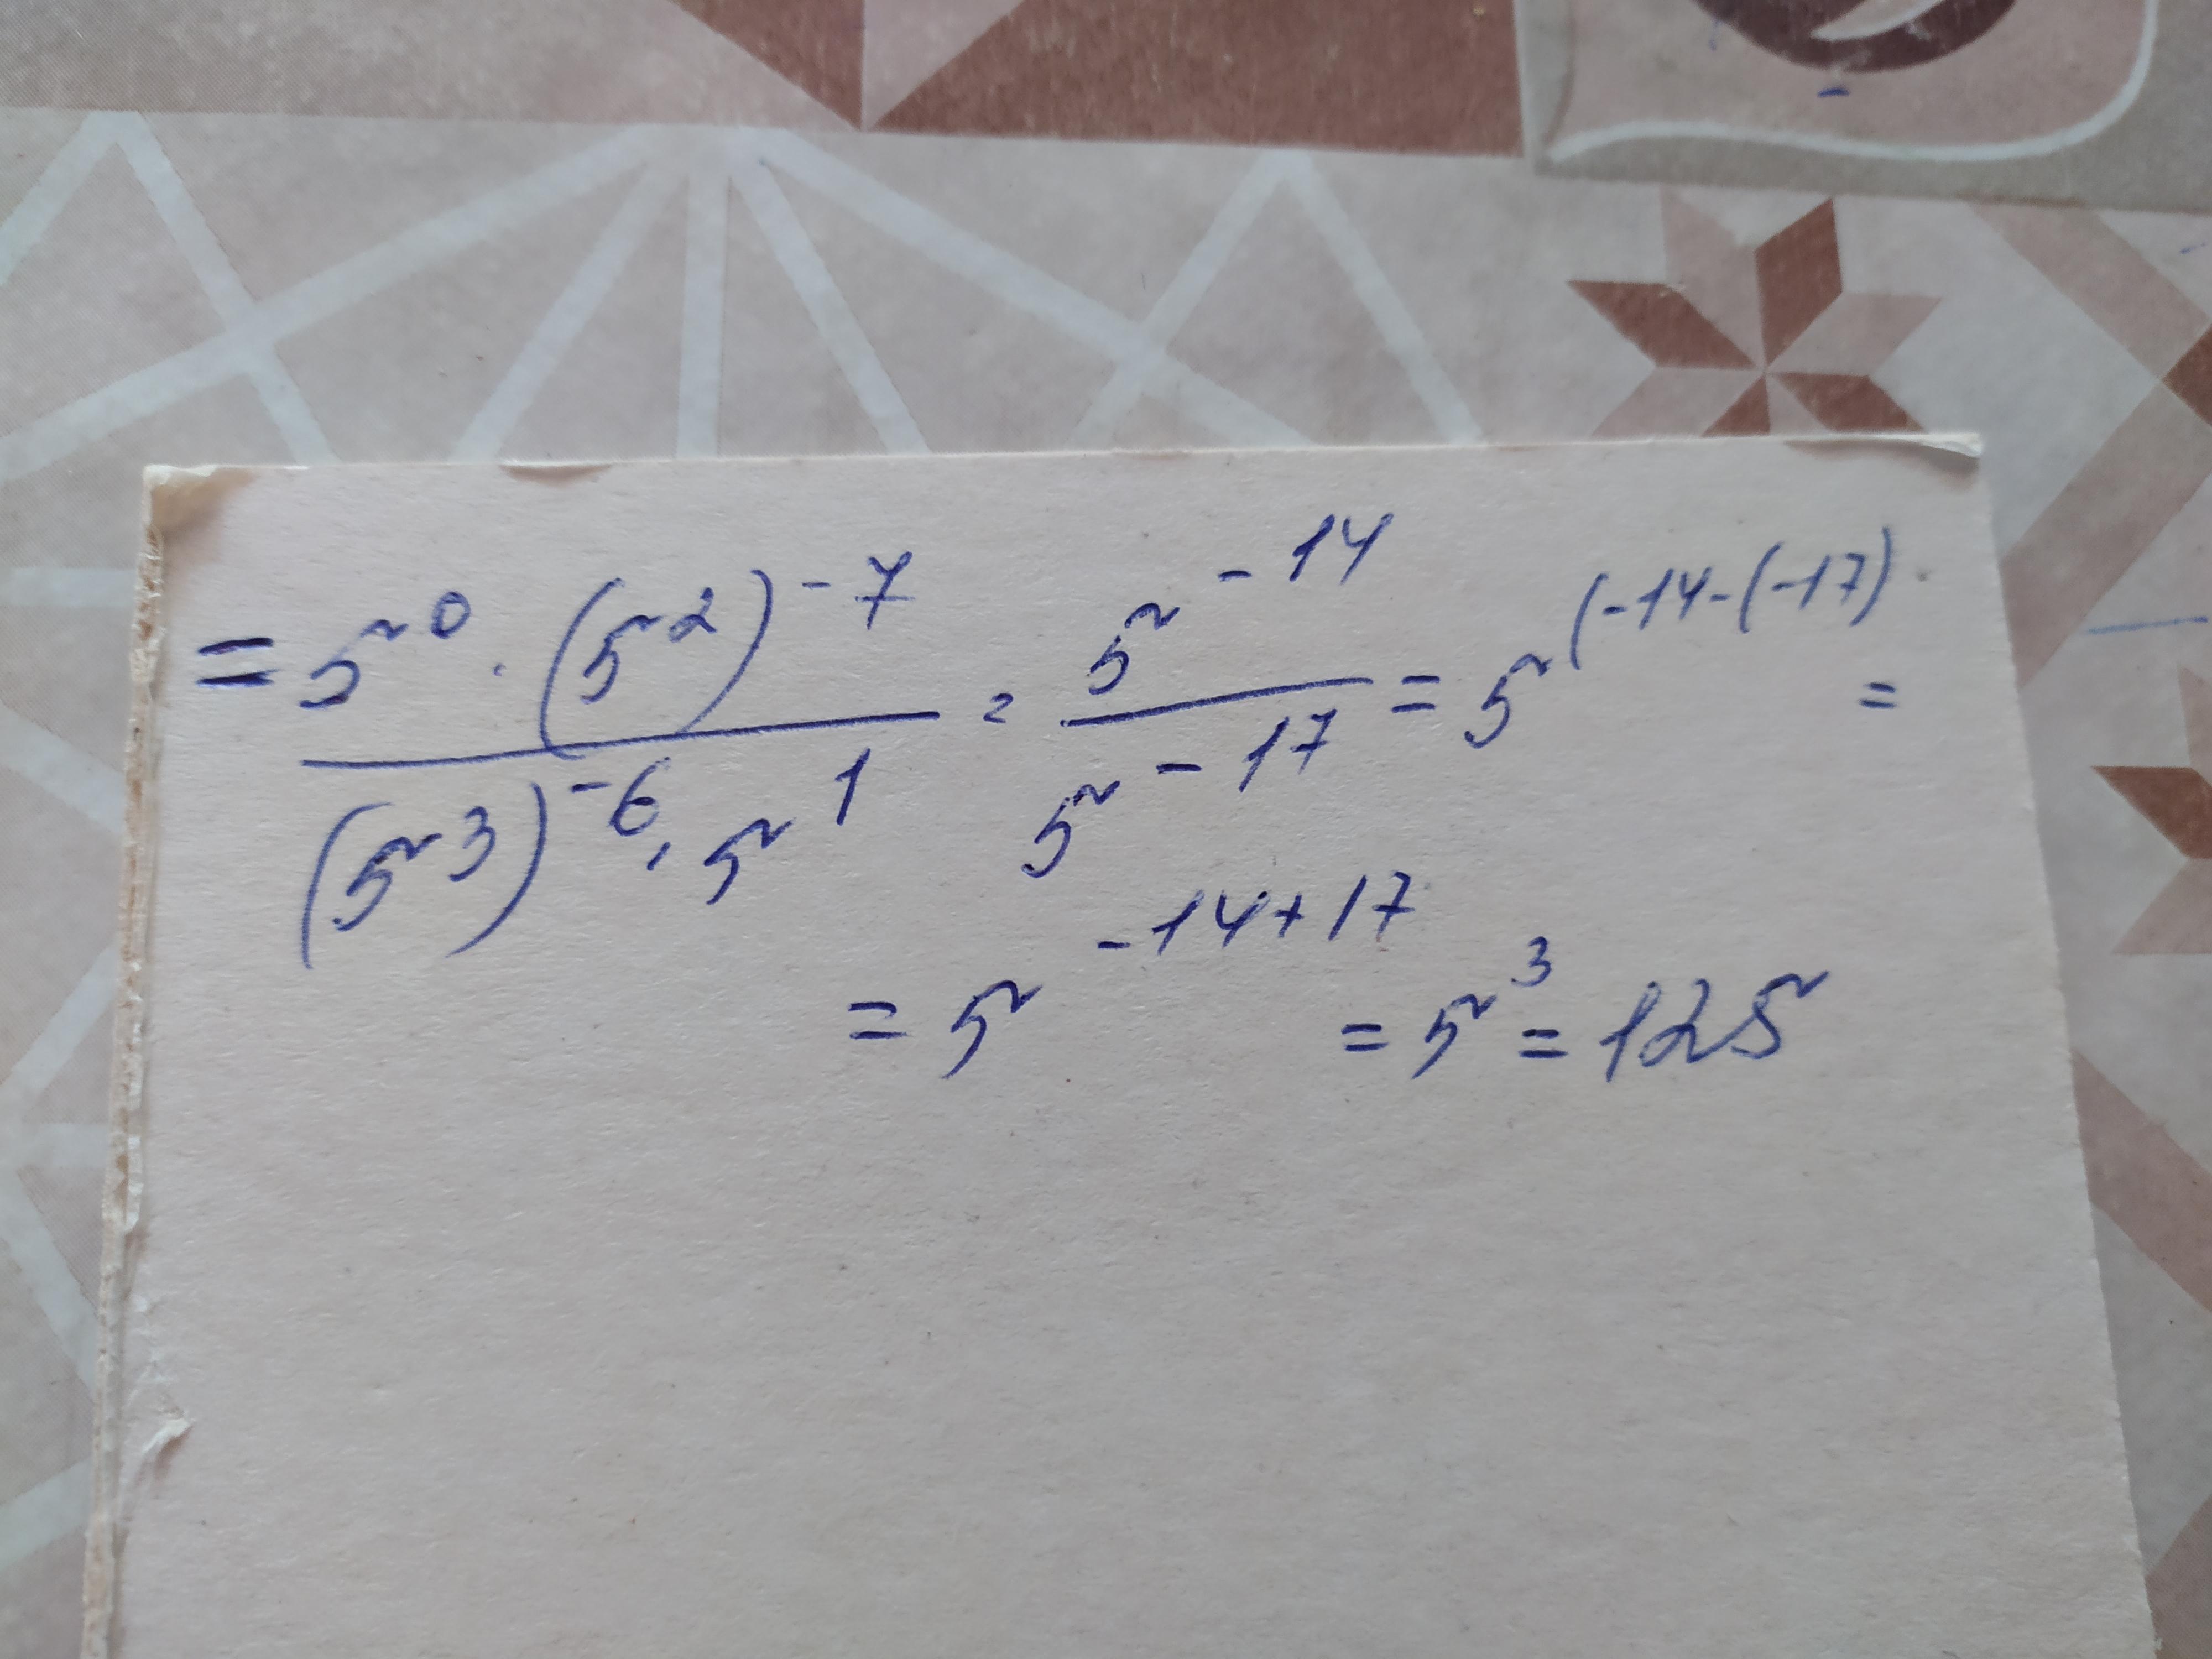 = 5^0 · (5^2)^-7 / (5^3)^-6 · 5^1 = 5^-14 / 5^-17 = 5^(-14-(-17) =
= 5^-14+17 = 5^3 = 125